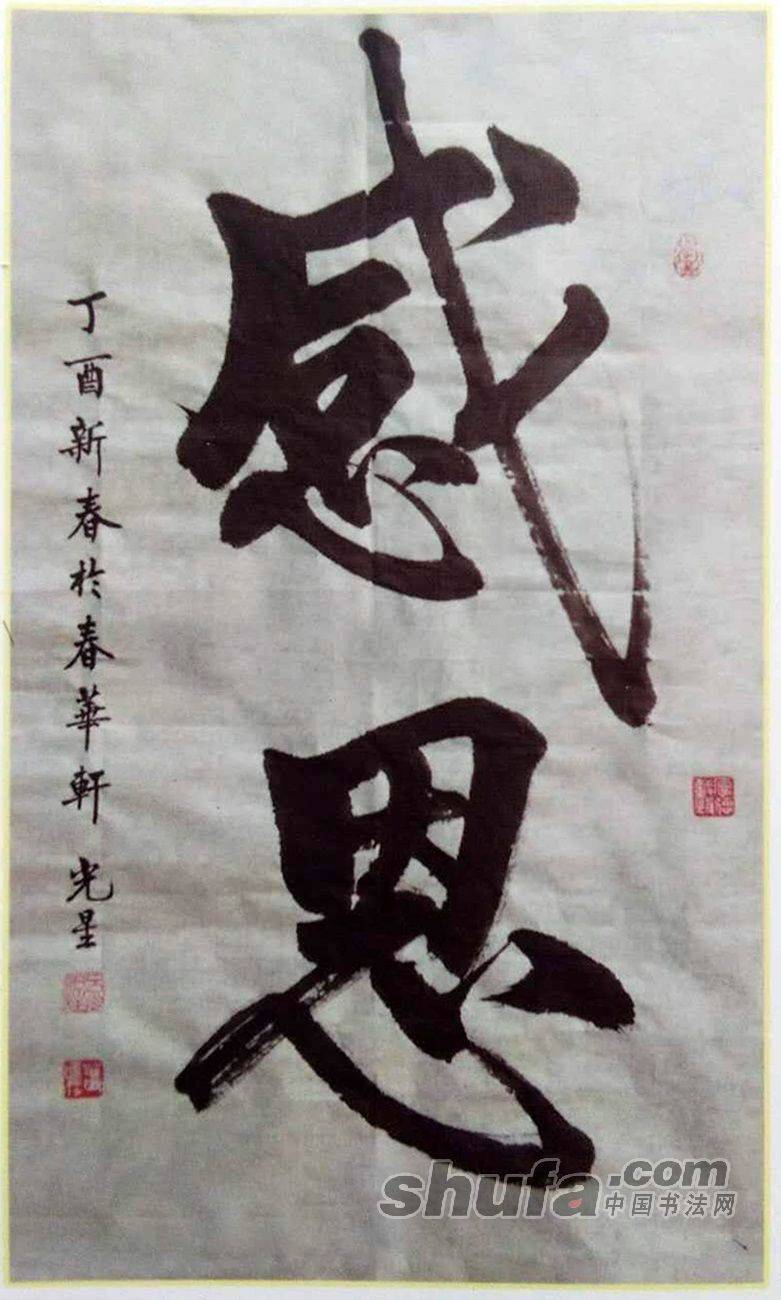 感恩
丁酉新春於春華軒 光星
shufa.com
中国书法网